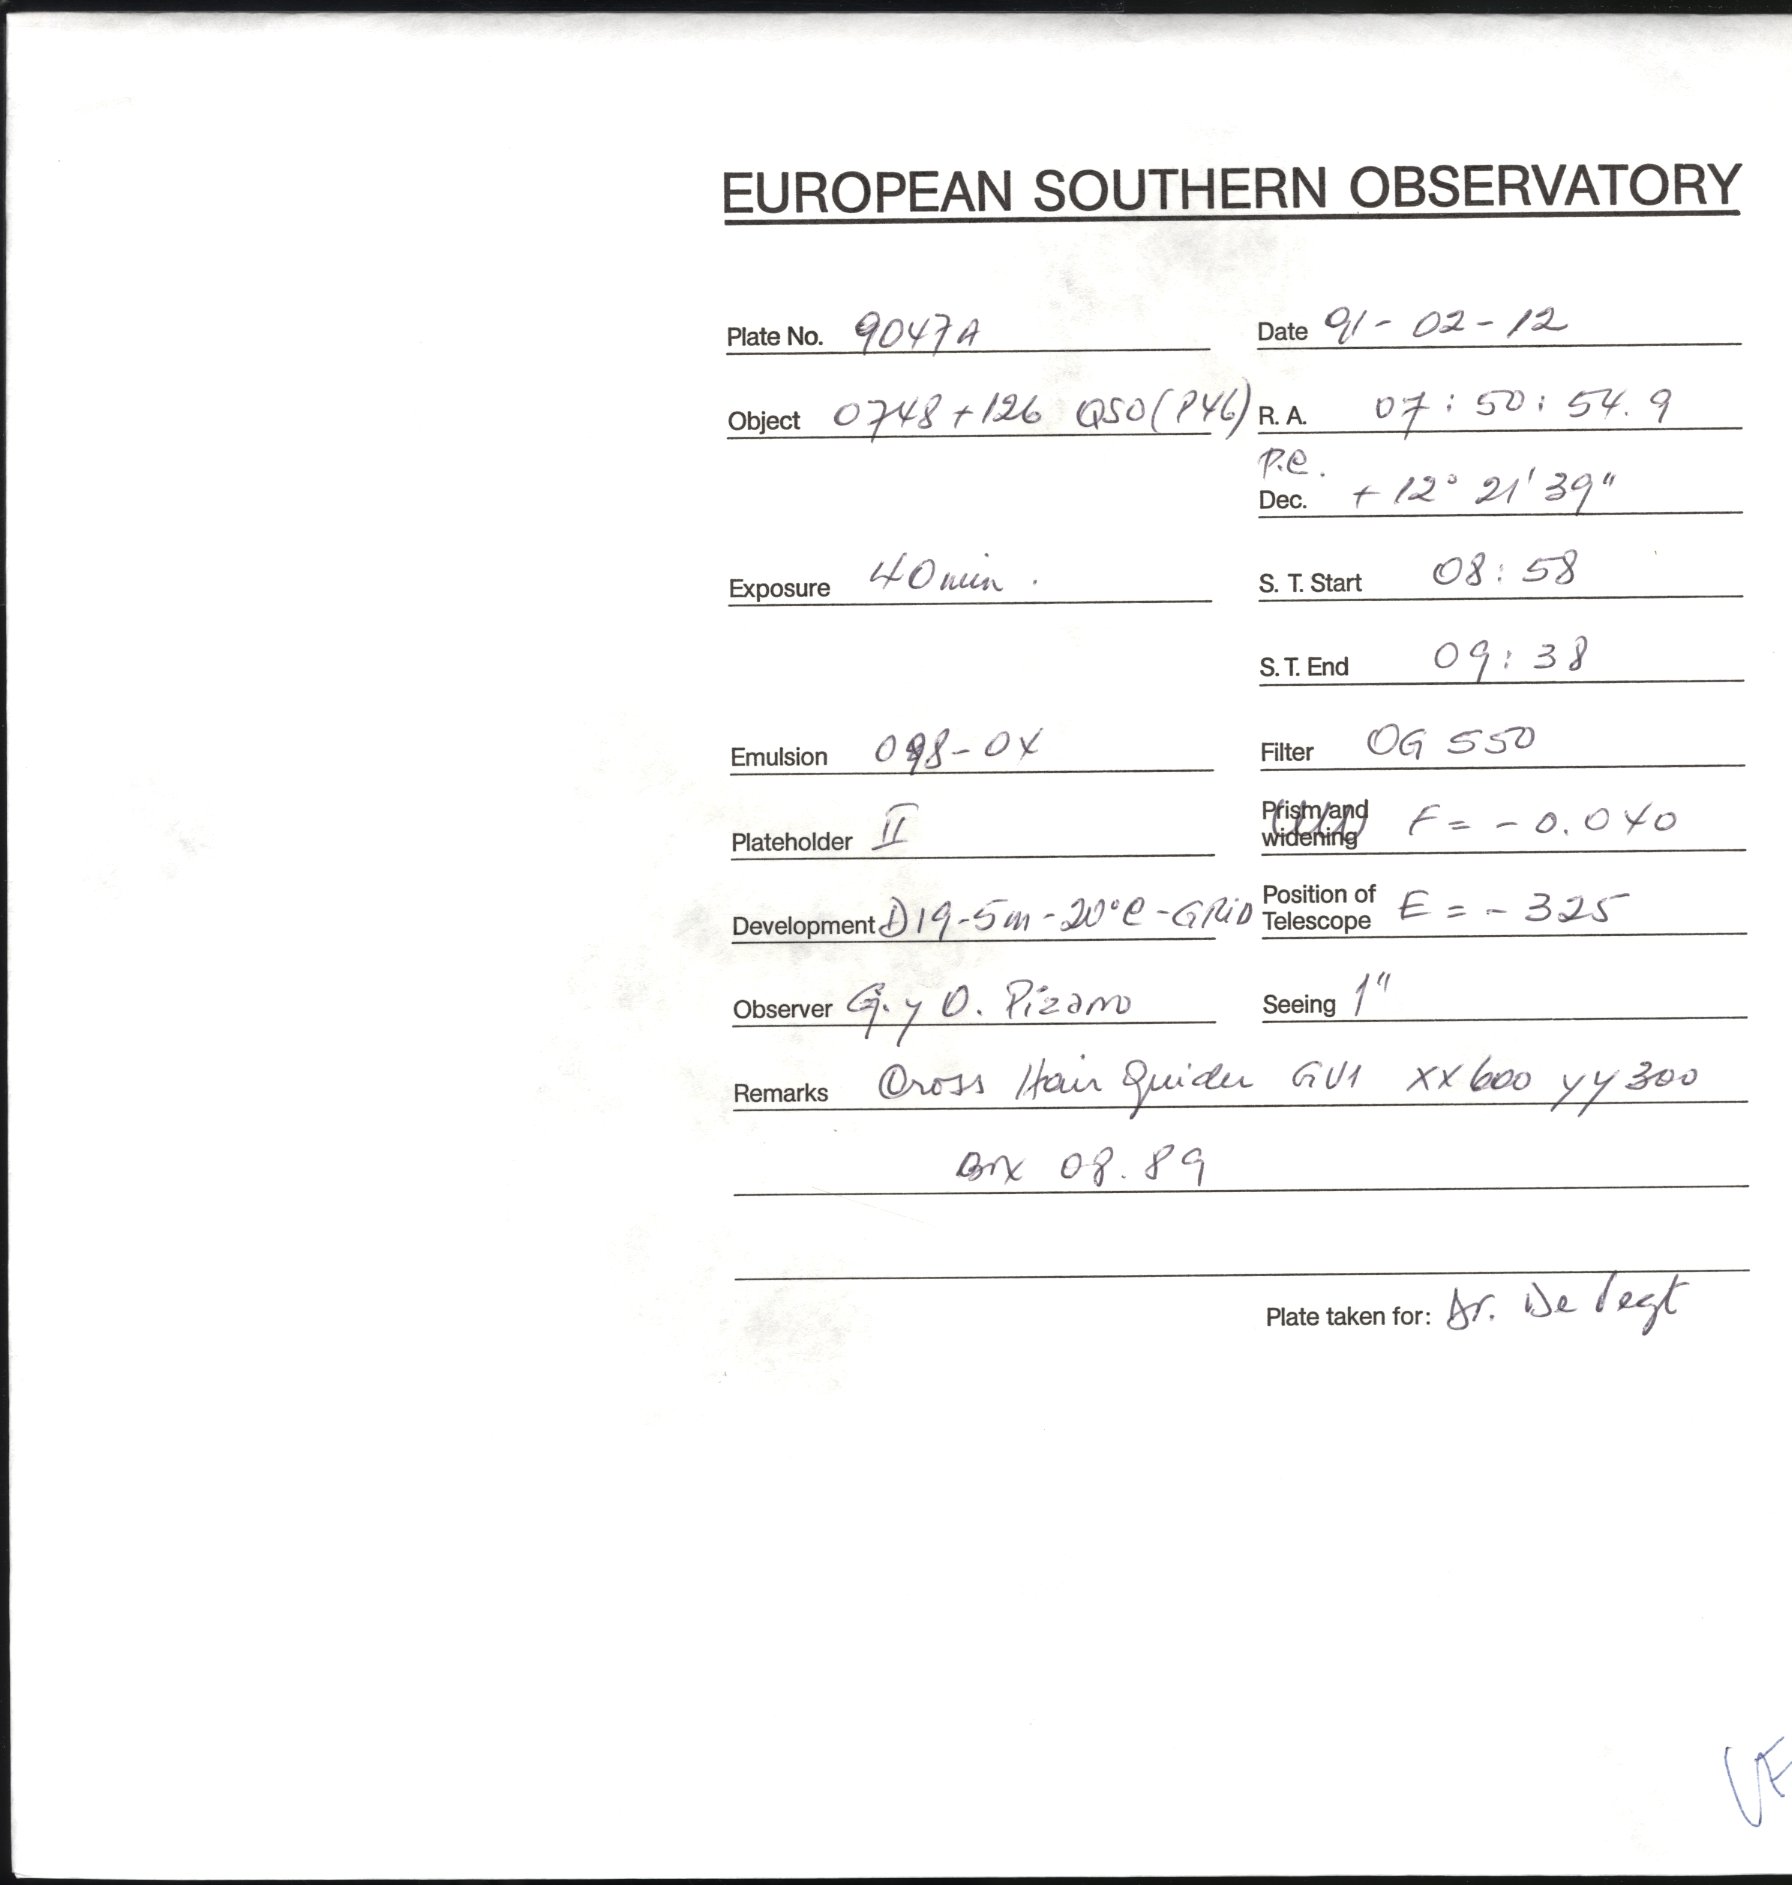 EUROPEAN SOUTHERN OBSERVATORY
Plate No. 9047A Date 91-02-12
Object 0748+126 QSO(P46) R. A. 07:50:54.9
P.e.
Dec. +12° 21' 39"
Exposure 40 min. S. T. Start 08:58
S. T. End 09:38
Emulsion 098-04 Filter OG 550
Plateholder II Prism and widening F = -0.040
Development D19-5m-20°C-GRiD Position of Telescope E = -325
Observer G. y O. Pizarro Seeing 1"
Remarks Cross Hair Guider GV1 XX600 YY300
08.89
Plate taken for: Dr. De Vegt